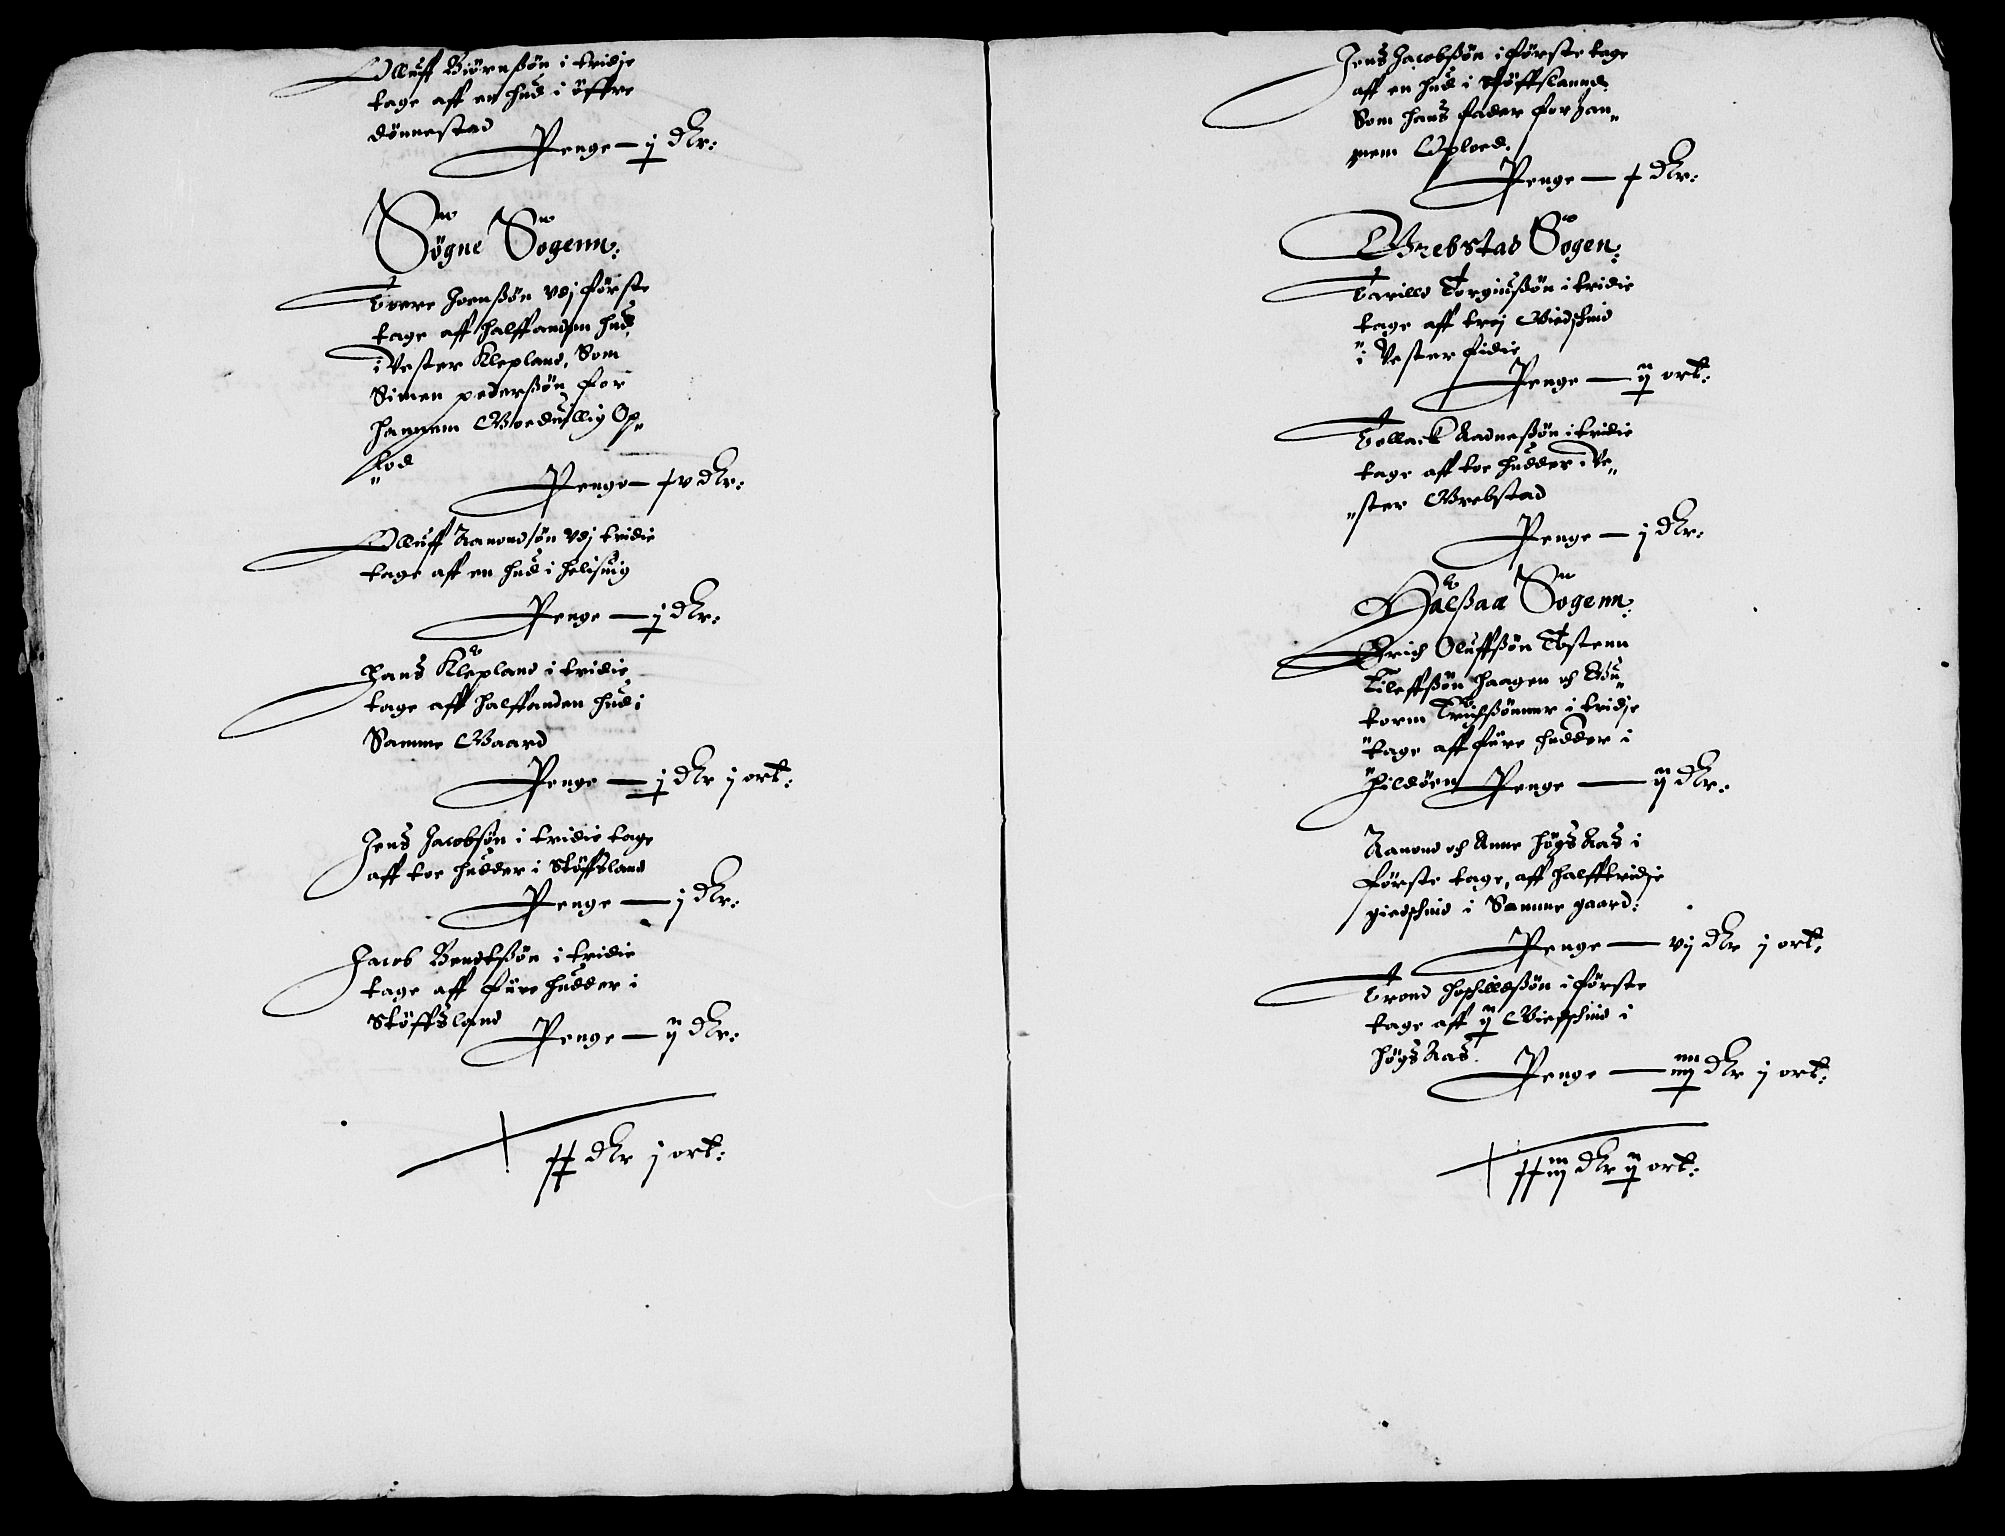 Olluff Biörnßön i tridje
tage aff en hud i öffre
dönnestad
Penge — j dlr:
Søgne Sogenn:
Tverre Joenßön vdj förste
tage aff halffanden hud
i Vester Klepland, Som
Simen pederßön for
hannem Goeduillig Op„
„lod
Penge — xv dlr:
Olluff Aanondsön vdj tridie
tage aff en hud i helisuig
Penge — j dlr:
Hans Klepland i tridie
tage aff halffanden hud i
Samme Gaard
Penge — j dlr j ort:
Jens Jacobsön i tridie tage
aff toe hudder i Stöffsland
Penge — j dlr:
Jacob Bendtßön i tridie
tage aff fiire hudder i
Stöffsland
Penge — ij dlr:
xx dlr j ort:
Jens Jacobßön i förste tage
aff en hud i Stöffslannd
Som hans fader for han„
nem Oploed.
Penge — x dlr:
Grebstad Sogen:
Tarilld Torgiusßön i tridie
tage aff trej Giedschind
„i Vester fidie
Penge — ij ort:
Tollack Aadneßön i tridie
tage aff toe hudder i Ve„
„ster Grebstad
Penge — j dlr:
Halßaa Sogenn:
Erich Oluffßön Tostenn
Tileffßön haagen och Gu„
torm Erichßönner i tridje
„tage aff fiire hudder i
„hildöen Penge — ij dlr:
Aanond och Anne högs Aas i
förste tage, aff halfftridje
giedschind i Samme gaard:
Penge — vj dlr j ort:
Trond hoskildßön i förste
tage aff ij Giedschind i
högs Aas.
Penge — iiij dlr j ort:
xxiij dlr ij ort: